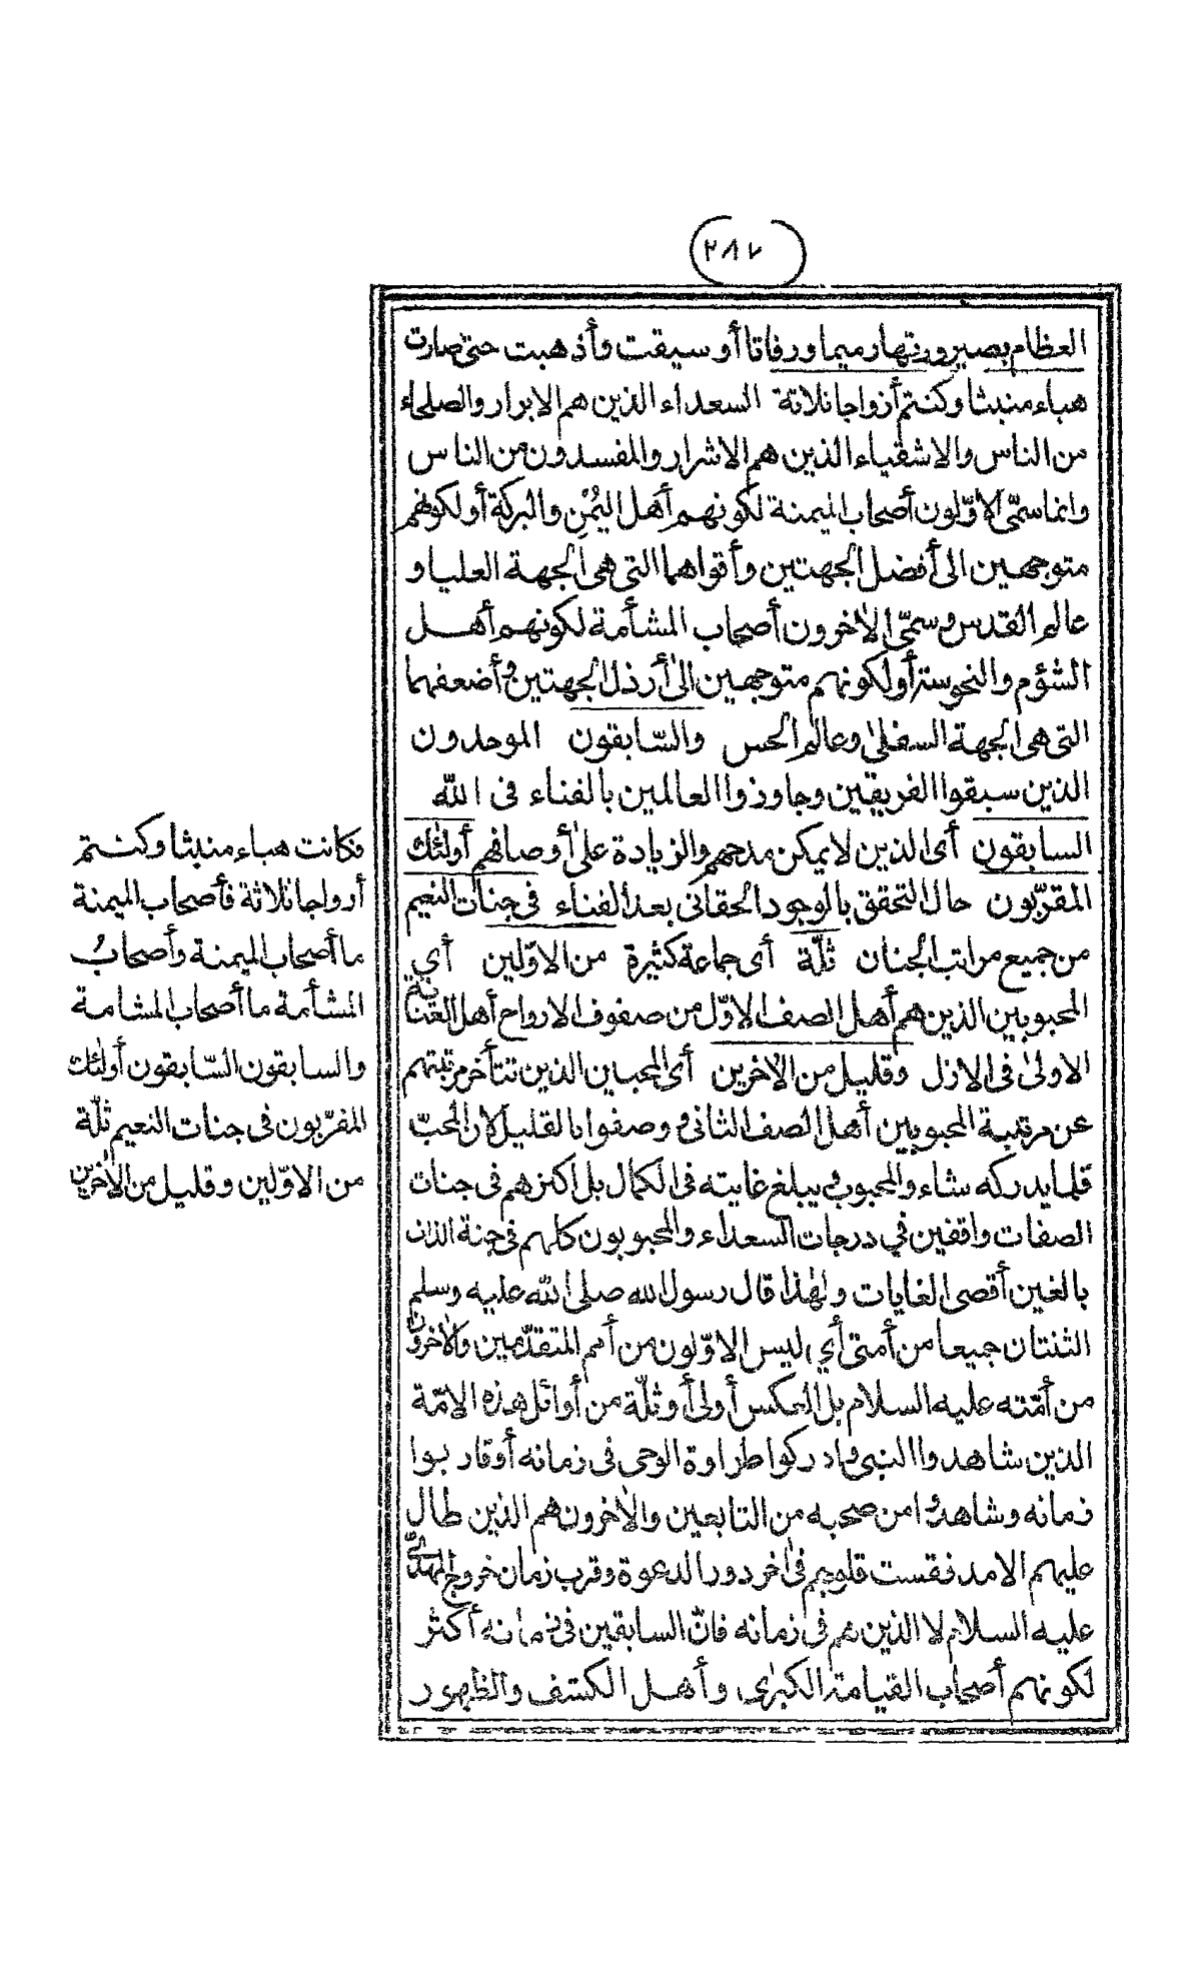 ٢٨٧
العظام بصيرورتها رميما ورفاتا أو سيقت وأذهبت حتى صارت
هباء منبثا وكنتم أزواجا ثلاثة السعداء الذين هم الابرار والصلحاء
من الناس والاشقياء الذين هم الاشرار والمفسدون من الناس
وانما سمّى الاوّلون أصحاب الميمنة لكونهم أهل اليُمْنِ والبركة أو لكونهم
متوجهين الى أفضل الجهتين وأقواهما التى هى الجهة العليا و
عالم القدس وسمّى الاٰخرون أصحاب المشأمة لكونهم أهل
الشؤم والنحوسة أو لكونهم متوجهين الىٰ أرذل الجهتين وأضعفهما
التى هى الجهة السفلىٰ وعالم الحس والسّابقون الموحدون
الذين سبقوا الفريقين وجاوزوا العالمين بالفناء فى اللّٰه
السابقون أى الذين لا يمكن مدحهم والزيادة علىٰ أوصافهم أولئك
المقرّبون حال التحقق بالوجود الحقانى بعد الفناء فى جنات النعيم
من جميع مراتب الجنان ثلّة أى جماعة كثيرة من الاوّلين أي
المحبوبين الذين هم أهل الصف الاوّل من صفوف الارواح أهل العناية
الاولىٰ فى الازل وقليل من الاٰخرين أى المحبين الذين تتأخر مرتبتهم
عن مرتبة المحبوبين أهل الصف الثانى ووصفوا بالقليل لان المحبّ
قلما يدركه شاء والمحبوب يبلغ غايته فى الكمال بل اكثرهم فى جنات
الصفات واقفين في درجات السعداء والمحبوبون كلهم فى جنة الذات
بالغين أقصى الغايات ولهٰذا قال رسول اللّه صلى اللّٰه عليه وسلم
الثلتان جميعا من أمتى أي ليس الاوّلون من أمم المتقدّمين والاٰخرون
من أمّته عليه السلام بل العكس أولى أو ثلّة من أوائل هذه الامّة
الذين شاهدوا النبى وادركوا طراوة الوحى فى زمانه أو قاربوا
زمانه وشاهدوا من صحبه من التابعين والاٰخرون هم الذين طال
عليهم الامد فقست قلوبهم فى اٰخر دور الدعوة وقرب زمان خروج المهدىّ
عليه السلام لا الذين هم فى زمانه فانّ السابقين فى زمانه أكثر
لكونهم أصحاب القيامة الكبرى وأهل الكشف والظهور
فكانت هباء منبثا وكنتم
أزواجا ثلاثة فأصحاب الميمنة
ما أصحاب الميمنة وأصحابُ
المشأمة ما أصحاب المشامة
والسابقون السّابقون أولٰئك
المقرّبون فى جنات النعيم ثلّة
من الاوّلين وقليل من الاٰخرين